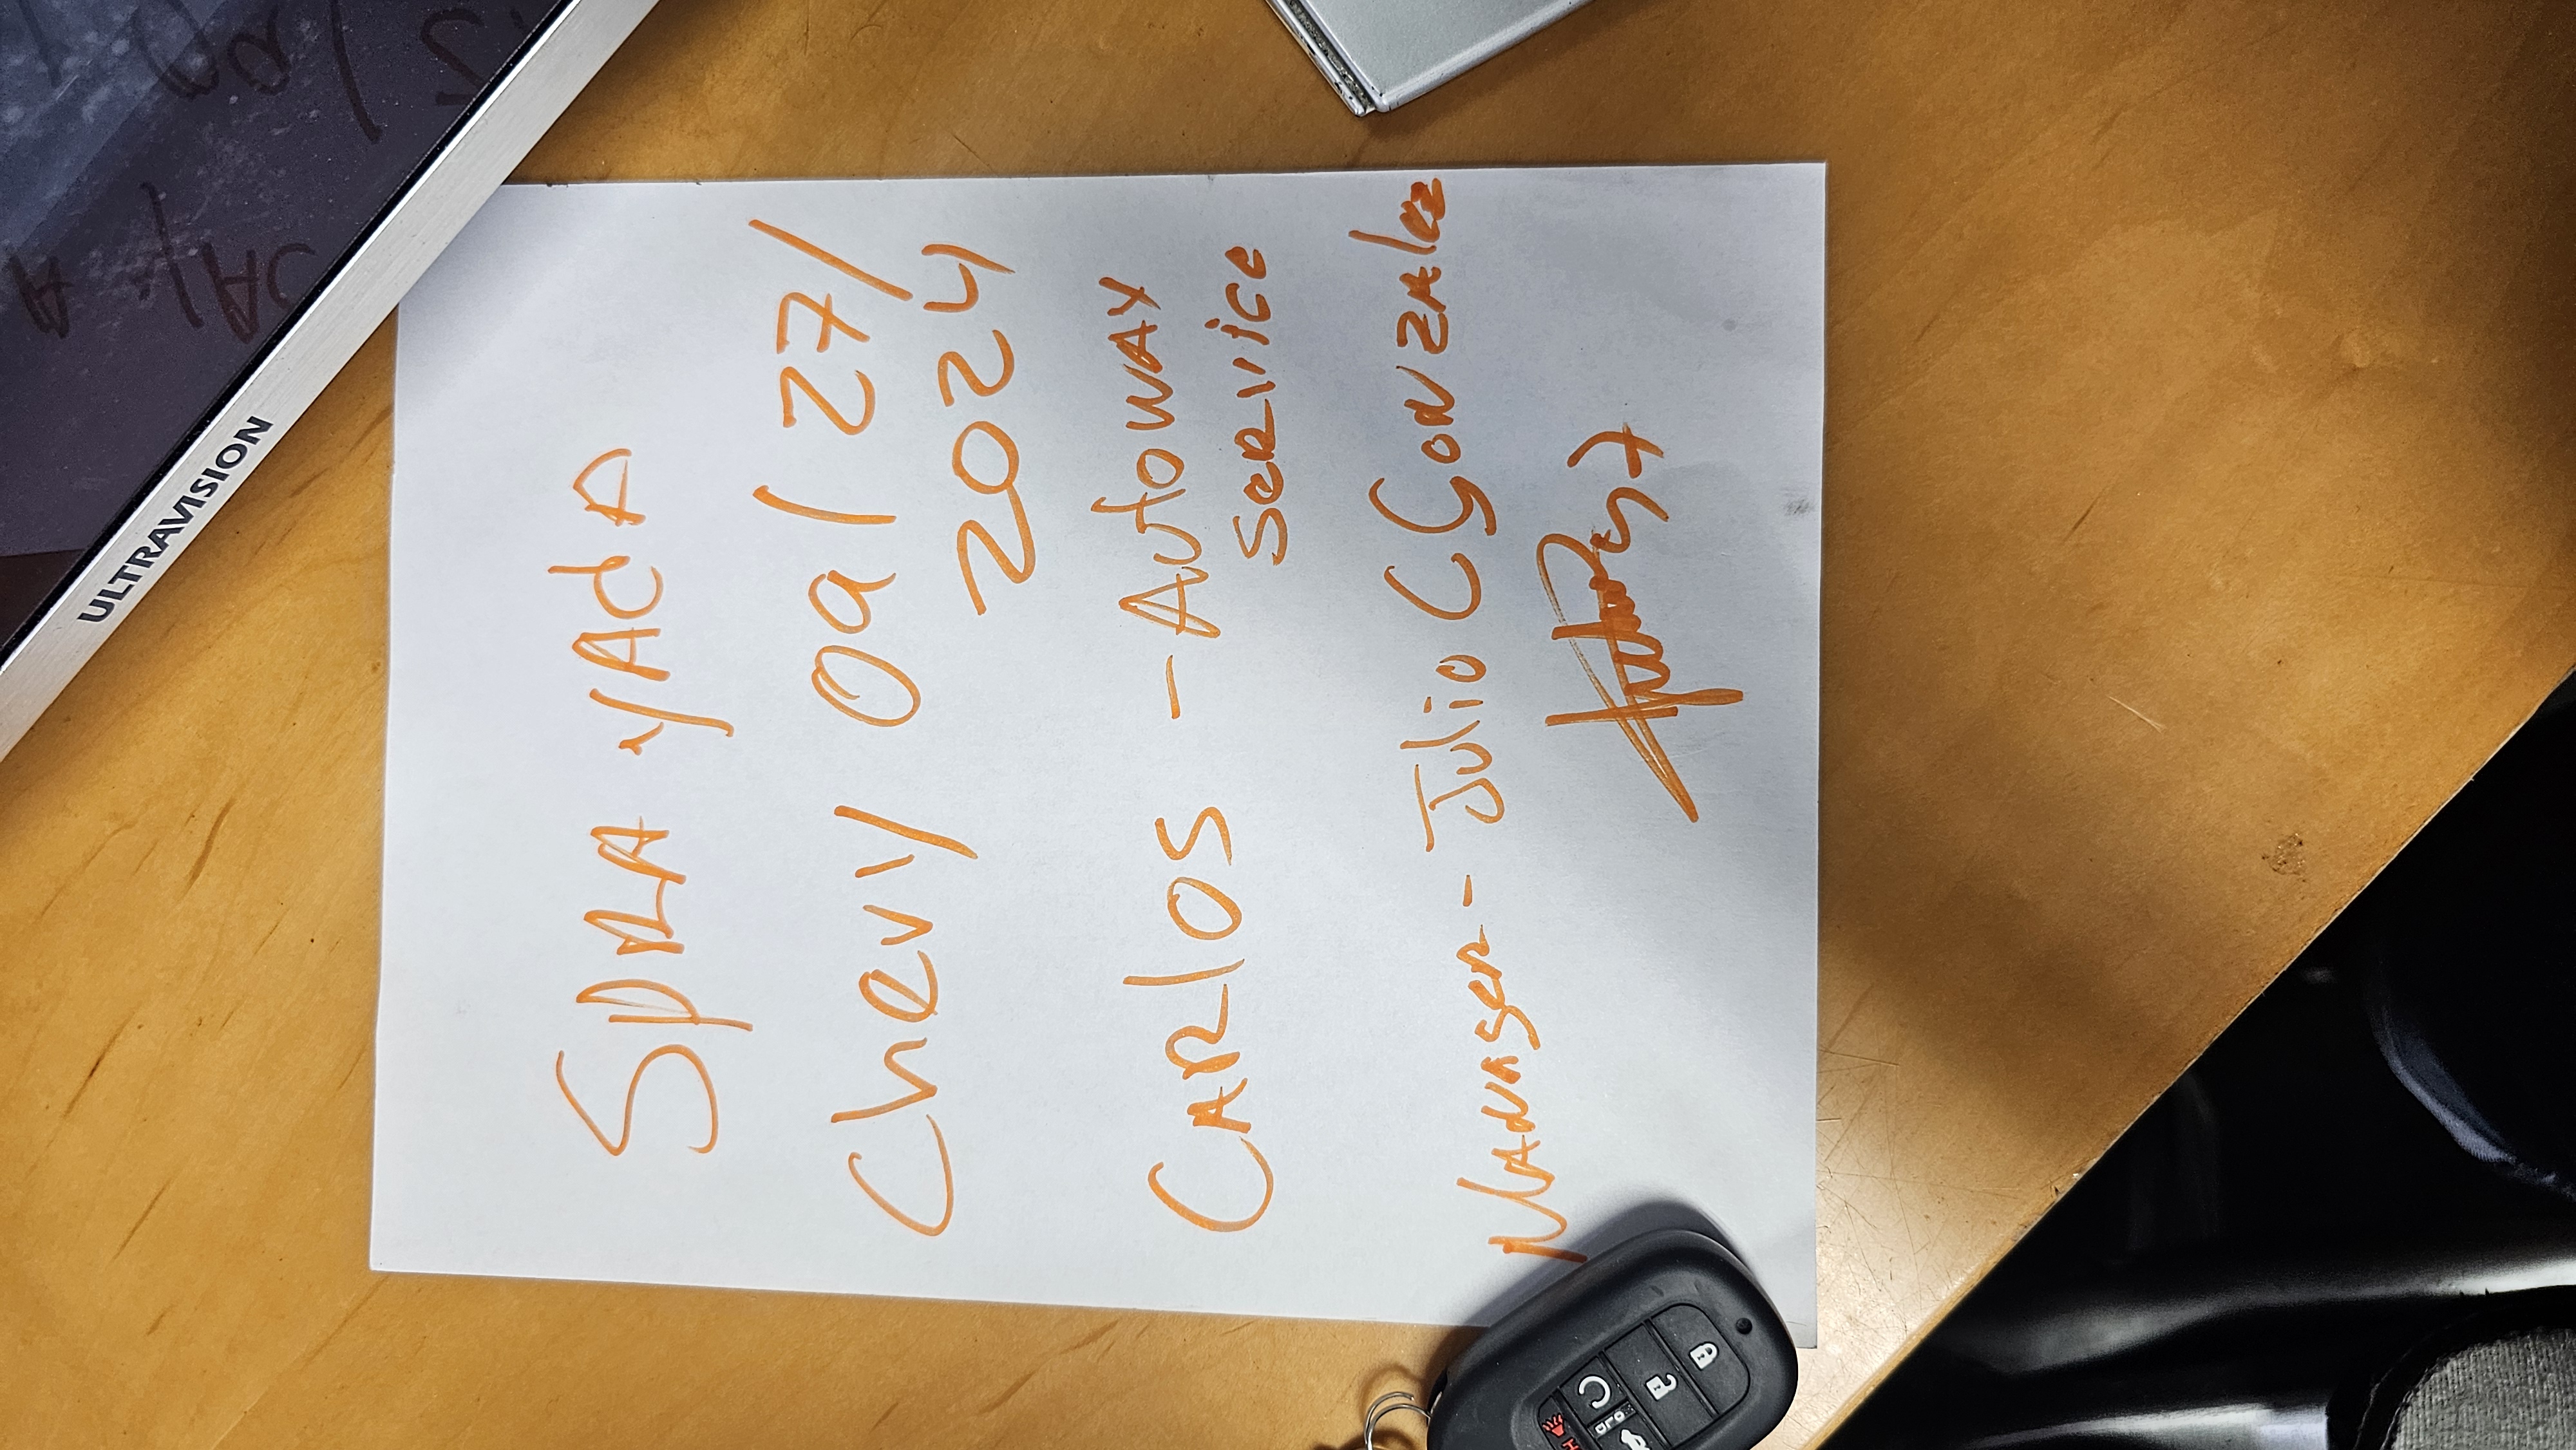 Chevy 09/27/
2024
CARlos - AutowAY
SeRvice
MANAgeR - Julio C GonzAlez
ULTRAVISION